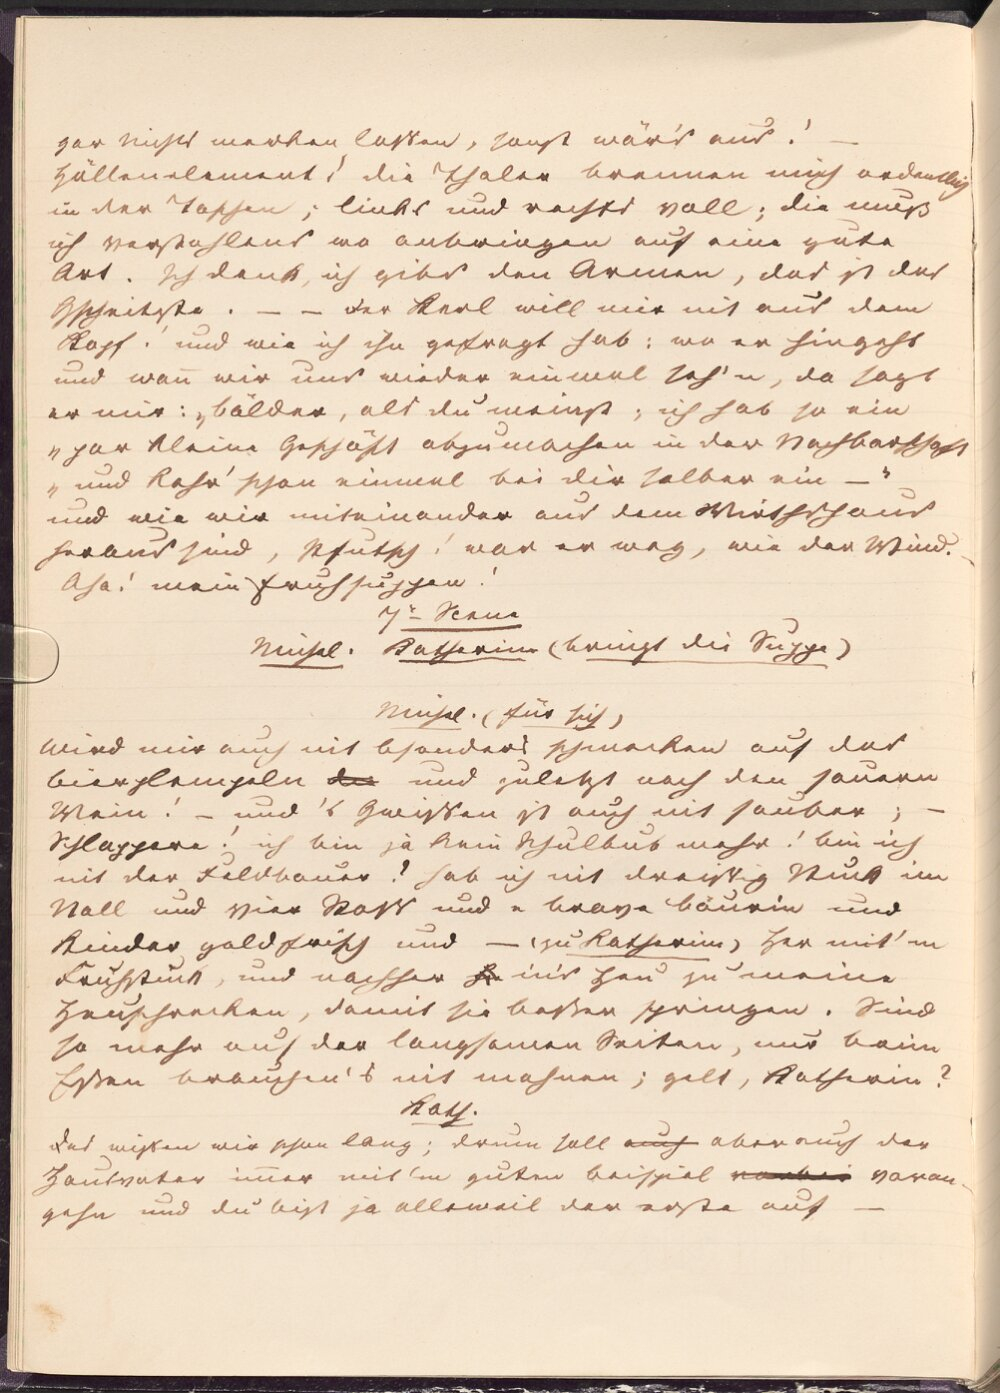 gar nichts merken lassen, sonst wär's aus! —
Höllenelement! die Thaler brennen mich ordentlich
in der Taschen; links und rechts voll; die muß
ich verstohlens wo anbringen auf eine gute
Art. Ich denk, ich gibs den Armen, das ist das
Gscheitste. — — Der Kerl will mir nit aus dem
Kopf! und wie ich ihn gefragt hab: wo er hingeht
und wañ wir uns wieder einmal seh'n, da sagt
er mir: „bälder, als du meinst; ich hab so ein
„par kleine Geschäft abzumachen in der Nachbarschaft
„und kehr' schon einmal bei dir selber ein —"
und wie wir miteinander aus dem Wirthshaus
heraus sind, Pfutsch! war er weg, wie der Wind.
Aha! mein Fruhsuppen!
7te Scene
Michel. Katherin (bringt die Suppe)
Michel. (für sich)
Wird mir auch nit bsonders schmecken auf das
bierplempeln die und zuletzt noch den sauern
Wein! — und 's Gwissen ist auch nit sauber; —
Schlappere! ich bin ja kein Schulbub mehr! bin ich
nit der Feldbauer? hab ich nit dreissig Stuck im
Stall und vier Ross und e brave bäurin und
Kinder goldfrisch und — (zu Katherin) Her mit'm
Fruhstuck, und nachher in's Heu zu meine
Heuschrecken, damit sie besser springen. Sind
so mehr auf der langsamen Seiten, nur beim
Essen brauchen's nit mahnen; gelt, Katherin?
Kath.
Das wissen wir schon lang; drum soll auch aber auch der
Hausvater im̄er mit'm guten beispiel vorbei voran-
gehn und du bist ja alleweil der erste auf —